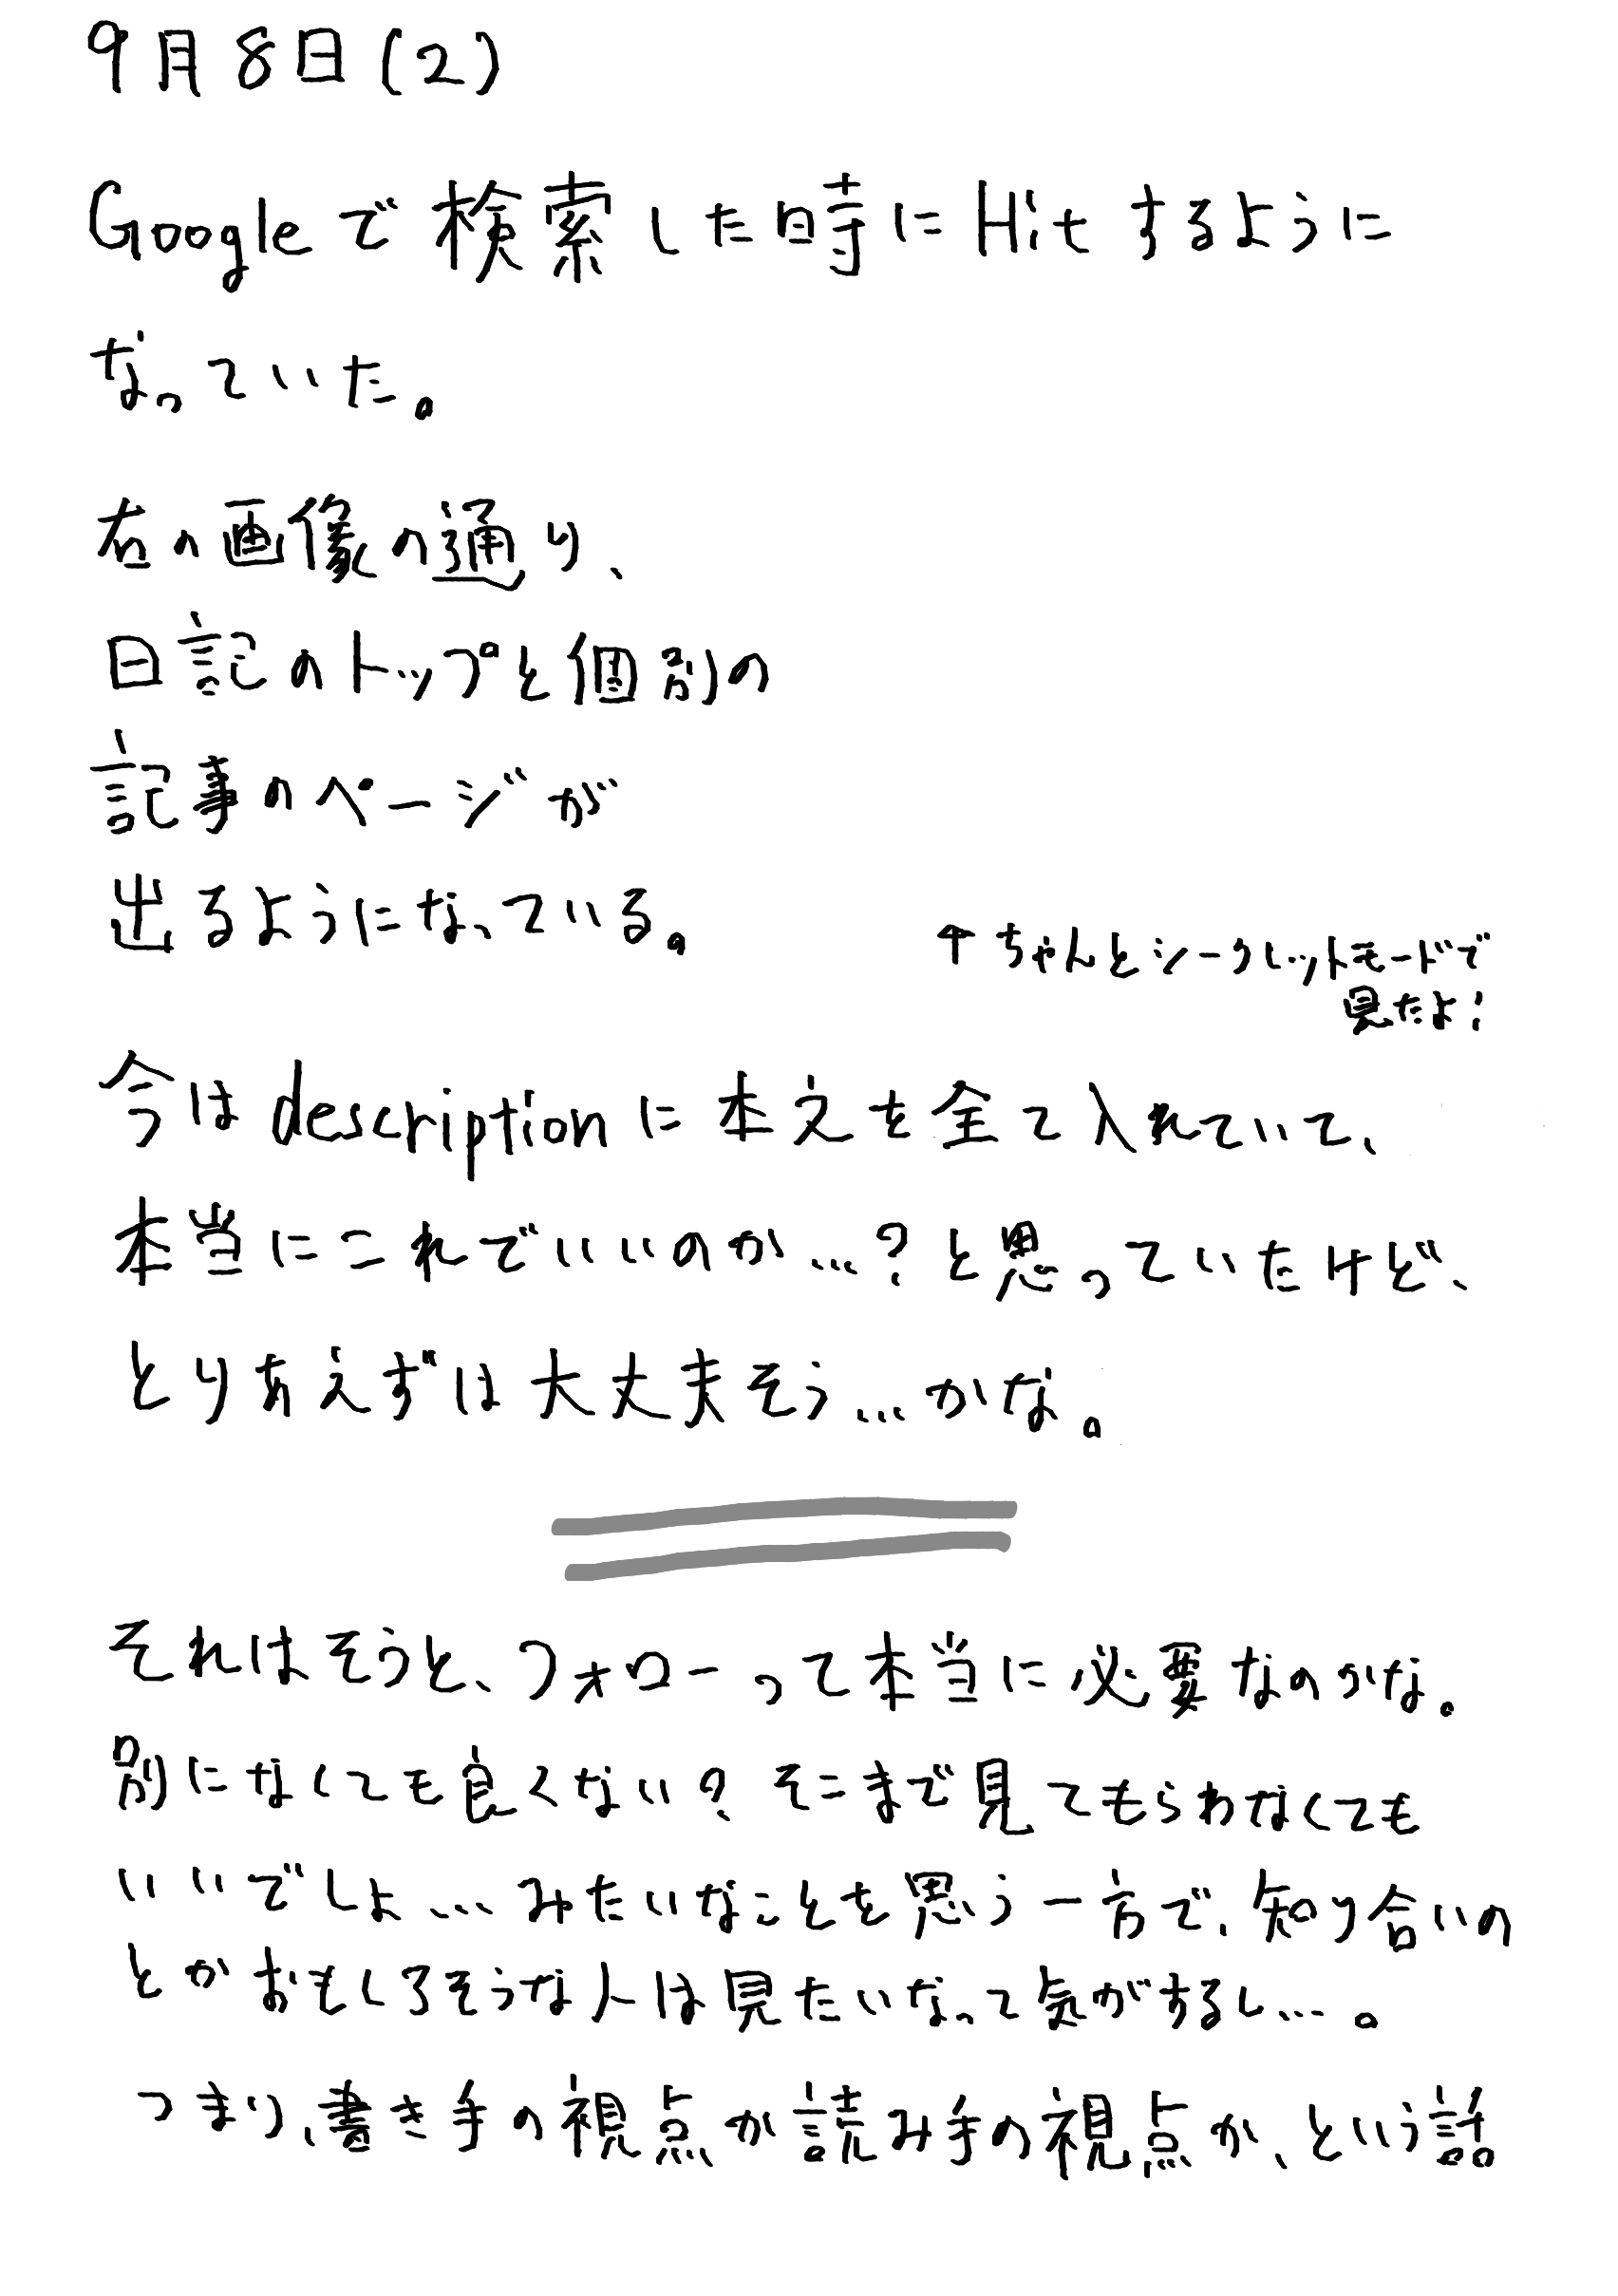 9月8日(2)
Googleで検索した時にHitするように
なっていた。
右の画像の通り、
日記のトップと個別の
記事のページが
出るようになっている。
↑ちゃんとシークレットモードで
見たよ!
今はdescriptionに本文を全て入れていて、
本当にこれでいいのか…?と思っていたけど、
とりあえずは大丈夫そう…かな。
それはそうと、フォローって本当に必要なのかな。
別になくても良くない?そこまで見てもらわなくても
いいでしょ…みたいなことを思う一方で、知り合いの
とかおもしろそうな人は見たいなって気がするし…。
つまり、書き手の視点か読み手の視点か、という話